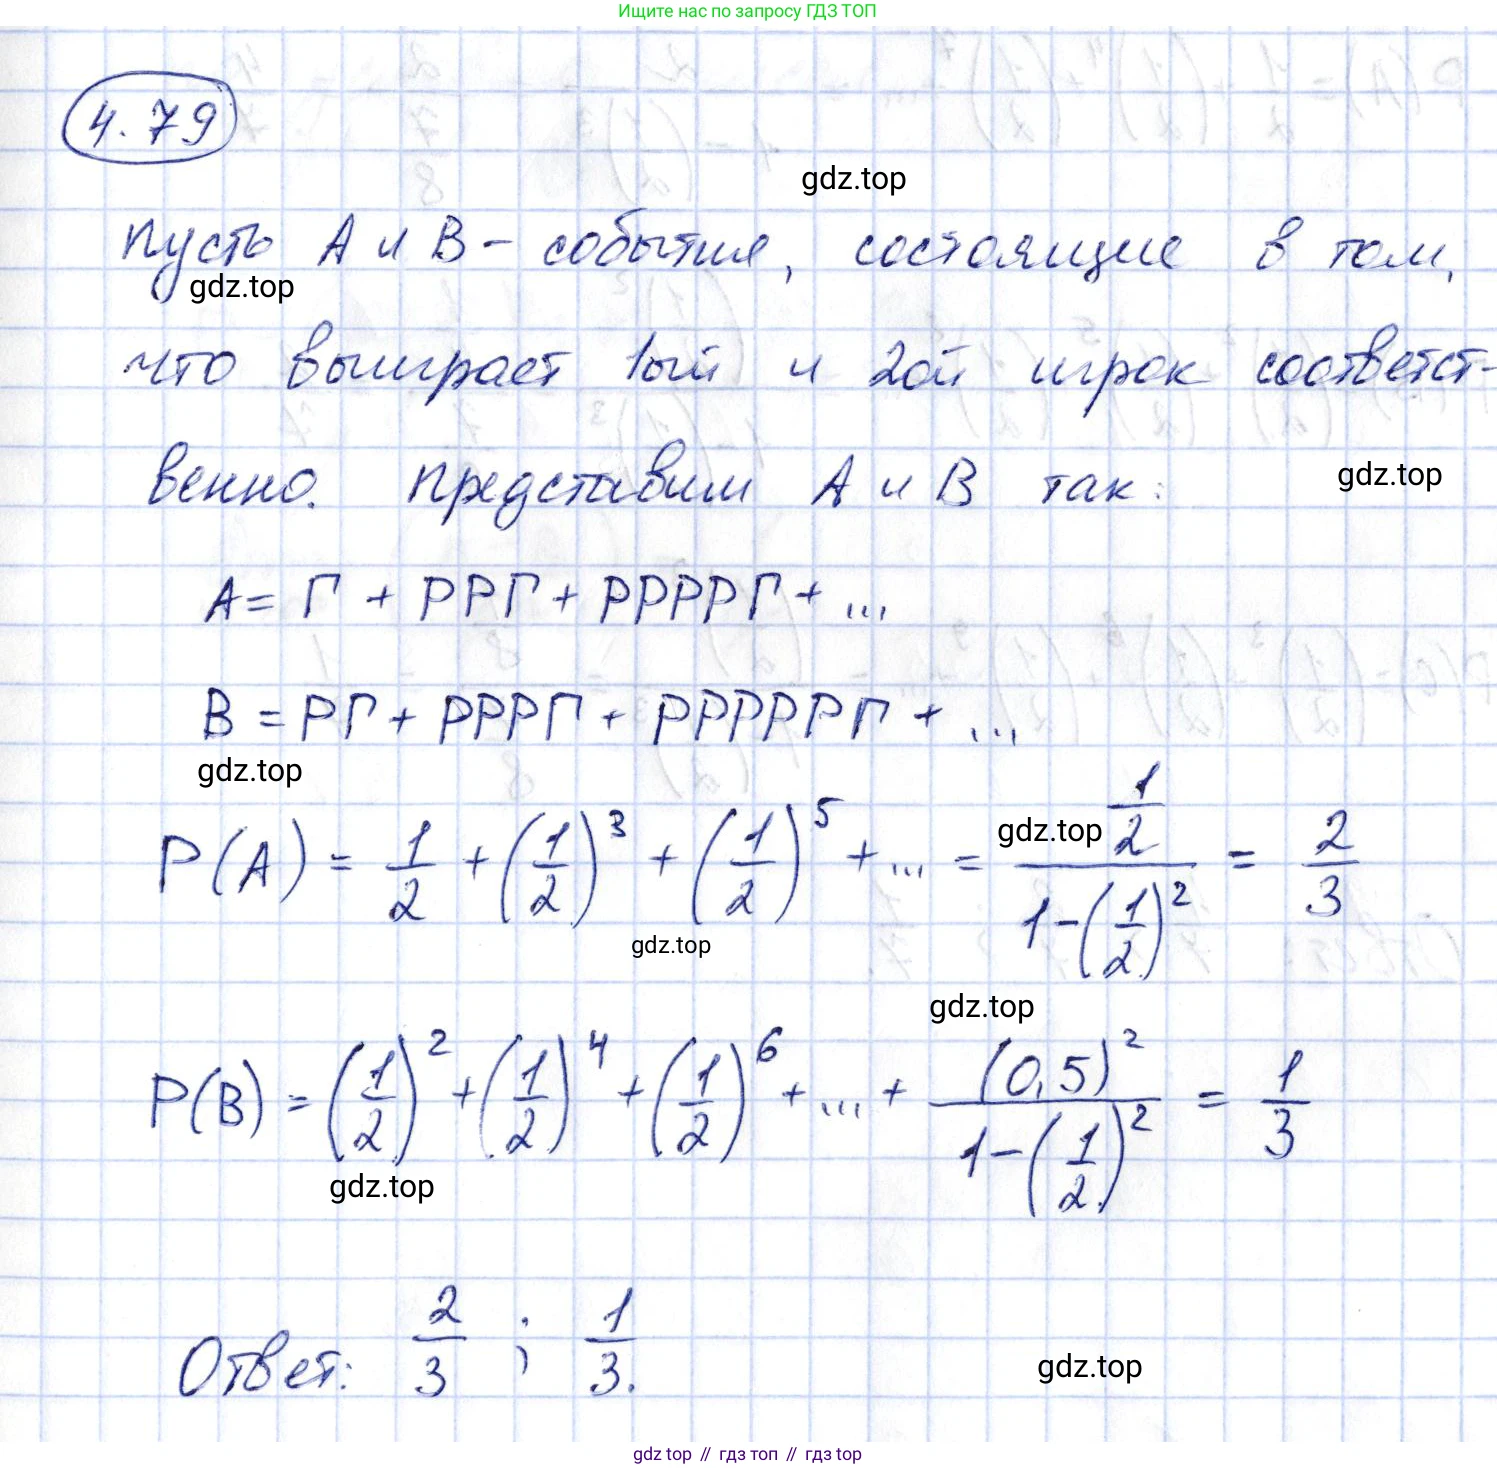 Ищите нас по запросу ГДЗ ТОП
4.79
gdz.top
пусть A и B - события, состоящие в том,
gdz.top
что выиграет 1ый и 2ой игрок соответст-
венно. Представим A и B так:
gdz.top
A = Г + РРГ + РРРРГ + ...
B = РГ + РРРГ + РРРРРГ + ...
gdz.top
P(A) = 1/2 + (1/2)^3 + (1/2)^5 + ... = (1/2)/(1-(1/2)^2) = 2/3
gdz.top
gdz.top
gdz.top
P(B) = (1/2)^2 + (1/2)^4 + (1/2)^6 + ... + (0,5)^2/(1-(1/2)^2) = 1/3
gdz.top
Ответ: 2/3 ; 1/3.
gdz.top
gdz.top // гдз топ // гдз top